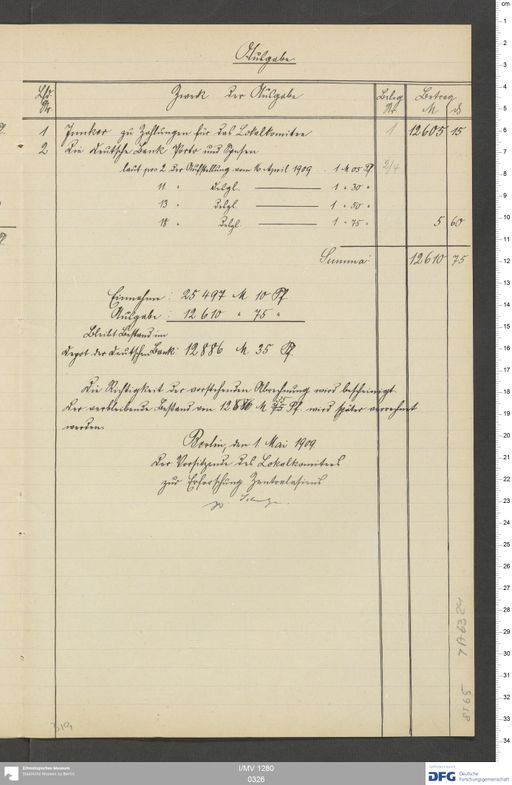 Ausgabe.
Lfd. Nr. Zweck der Ausgabe Beleg Nr. Betrag M d
1 Junker zu Zahlungen für das Lokalkomitee 1 12605 15
2 Die Deutsche Bank Porto und Spesen 2/4
laut pos 2 der Aufstellung vom 10. April 1909 1 M 05 Pf
11 " desgl. 1 " 30 "
13 " desgl. 1 " 50 "
18 " desgl. 1 " 75 " 5 60
Summa: 12610 75
Einnahme: 25 497 M 10 Pf.
Ausgabe: 12 610 " 75 "
Bleibt Bestand im
Depot der Deutschen Bank: 12886 M 35 Pf.
Die Richtigkeit der vorstehenden Abrechnung wird bescheinigt.
Der verbleibende Bestand von 12886 M. 35 Pf. wird später verrechnet
werden.
Berlin, den 1. Mai 1909
Der Vorsitzende des Lokalkomitees
zur Erforschung Zentralasiens
Ethnologisches Museum
Staatliche Museen zu Berlin
I/MV 1280
0326
DFG Deutsche
Forschungsgemeinschaft